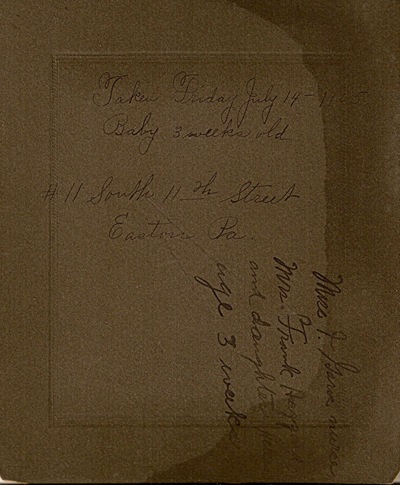 Taken Friday July 14 - 11
Baby 3 weeks old
# 11 South 11th Street
Easton Pa.
Miss J. nurse
Mrs. Frank
and daughter
age 3 weeks